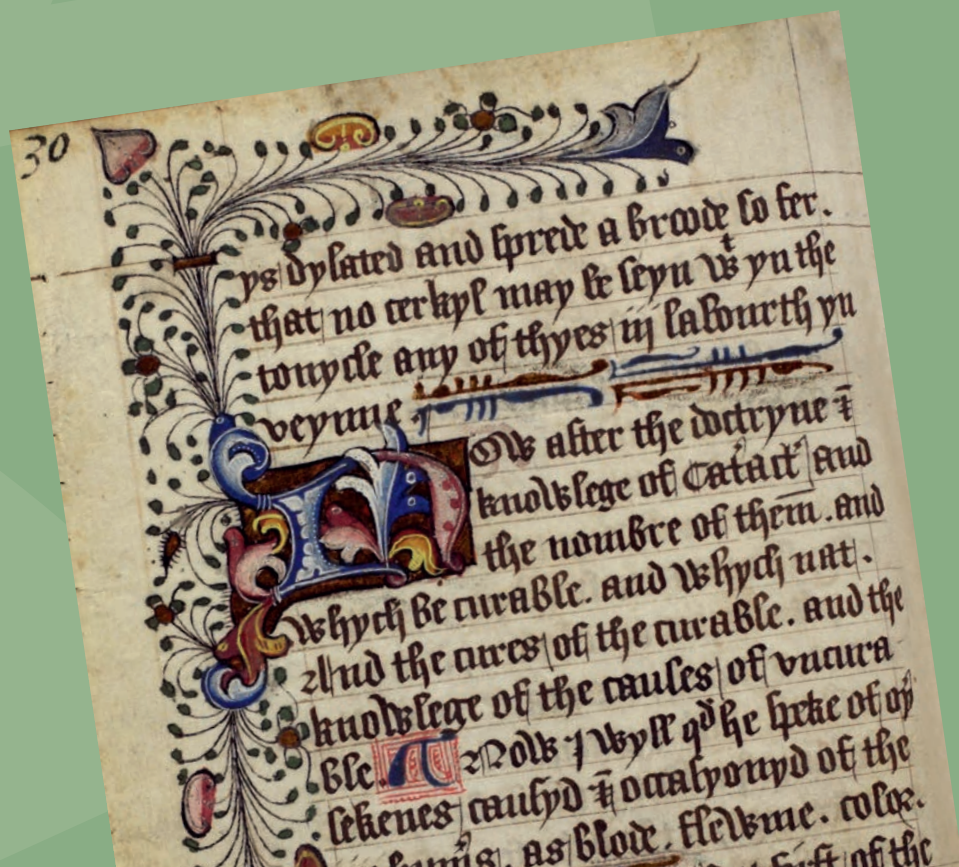 30
ys dylated and sprede a broode so fer.
that no cerkyl may be seyn wt yn the
conycle any of thyes iij labourth yn
veynne
Now after the doctryne &
knowlege of Catact and
the nombre of them. and
whych be curable. and whych nat.
And the cures of the curable. and the
knowlege of the causes of vncura
ble. Now I wyll qd he speke of oþ
sekenes causyd & occasyonyd of the
as blode. fflewme. color.
of the